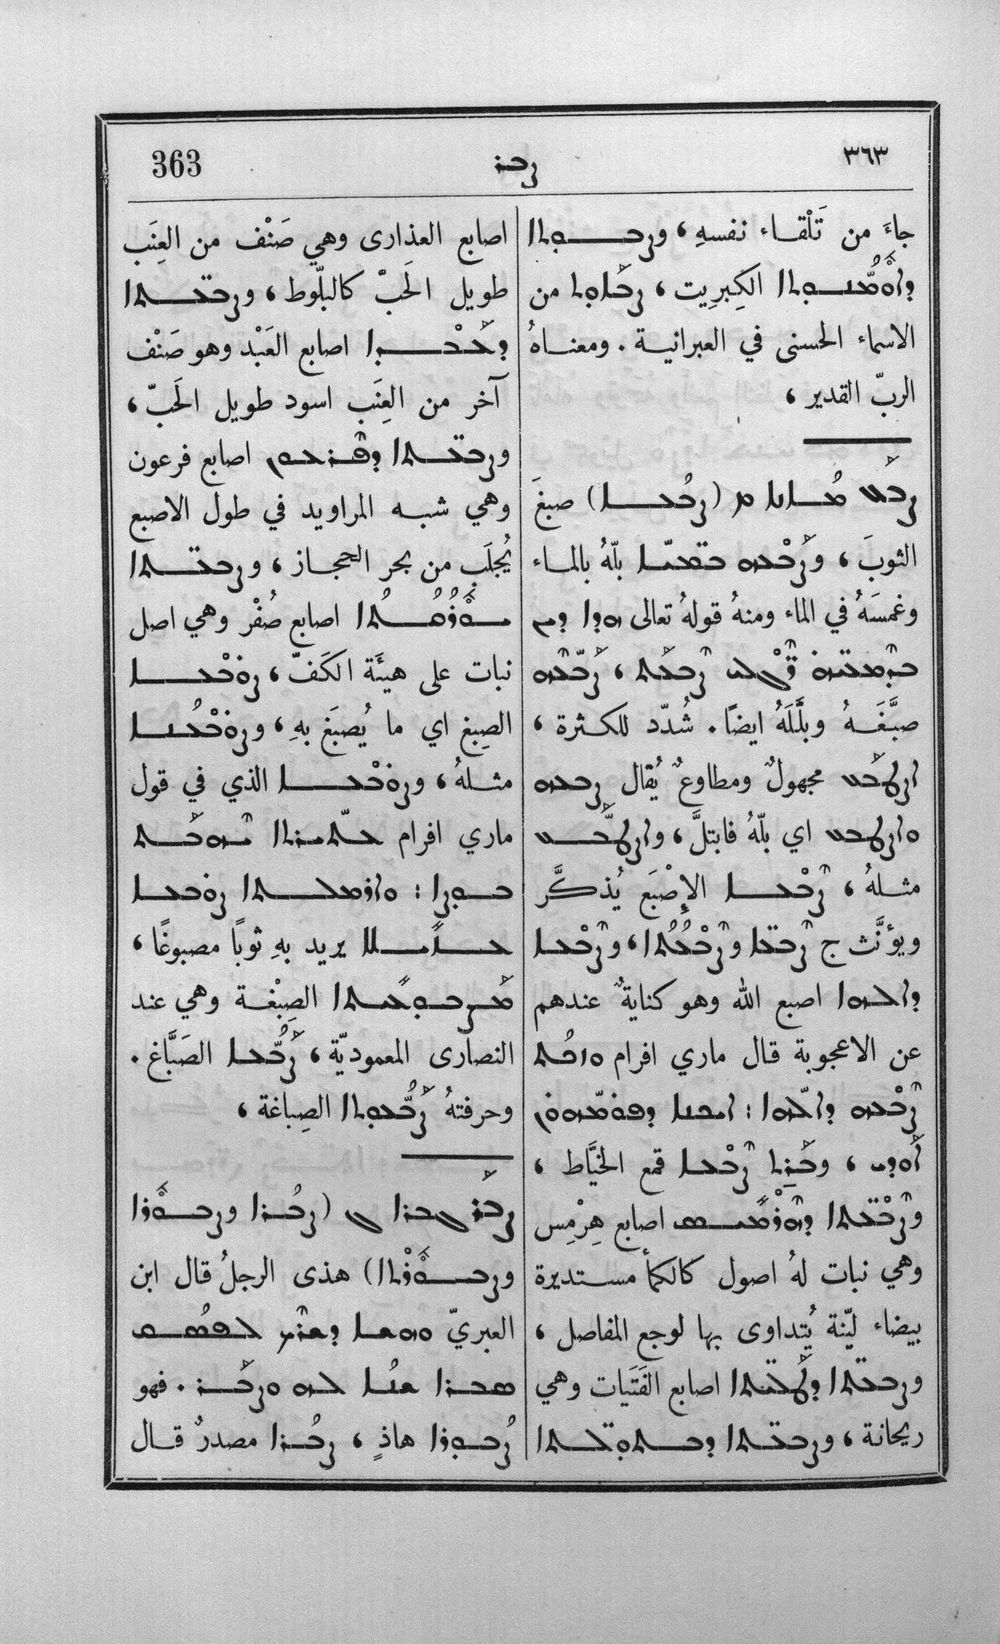 ٣٦٣
ܨܒܪ
363
جاءَ من تَلْقاء نفسهِ، وܨܒܘܬܐ
ܕܐܘܡܢܘܬܐ الكِبرِيت، ܨܒܐܘܬ من
الاسماء الحسنى في العبرانية. ومعناهُ
الربّ القدير،
ܨܒܥ (ܨܒܥܐ) صبغَ
الثوبَ، وܨܒܥܗ ܒܡܝܐ بلّهُ بالماء
وغمسَهُ في الماء ومنهُ قولهُ تعالى
ܨܒܥܗ
صبَّغَهُ وبلَّلَهُ ايضاً. شُدّد للكثرة،
ܐܨܛܒܥ مجهولٌ ومطاوعٌ يُقال ܨܒܥܗ
ܘܐܨܛܒܥ اي بلّهُ فابتلَّ، وܐܨܛܒܥ
مثلهُ، ܨܒܥܐ الإِصْبَع يُذكَّر
ويؤنَّث ج ܨܒܥܐ وܨܒܥܬܐ، وܨܒܥܐ
ܕܐܠܗܐ اصبع الله وهو كنايةٌ عندهم
عن الاعجوبة قال ماري افرام
ܨܒܥܗ ܕܐܠܗܐ:
وܟܪܐ ܨܒܥܐ قمع الخيَّاط،
وܨܒܥܬܐ ܕܗܪܡܝܣ اصابع هِرْمِس
وهي نبات لهُ اصول كالكمأ مستديرة
بيضاء ليّنة يُتداوى بها لوجع المفاصل،
وܨܒܥܬܐ ܕܛܠܝܬܐ اصابع الفَتَيات وهي
ريحانة، وܨܒܥܬܐ ܕܒܬܘܠܬܐ
اصابع العذارى وهي صَنْف من العِنَب
طويل الحَبّ كالبلّوط، وܨܒܥܬܐ
ܕܥܒܕܐ اصابع العَبْد وهو صَنْف
آخر من العِنَب اسود طويل الحَبّ،
وܨܒܥܬܐ ܕܦܪܥܘܢ اصابع فرعون
وهي شبه المراويد في طول الاصبع
يُجلَب من بحر الحجاز، وܨܒܥܬܐ
اصابع صُفْر وهي اصل
نبات على هيئَة الكَفّ، ܨܘܒܥܐ
الصِبغ اي ما يُصبَغ بهِ، وܨܘܒܥܢܐ
مثلهُ، وܨܘܒܥܐ الذي في قول
ماري افرام
ܨܘܒܥܐ
يريد بهِ ثوباً مصبوغًا،
ܡܨܒܘܥܝܬܐ الصِبْغة وهي عند
النصارى المعموديّة، ܨܒܥܐ الصَبَّاغ.
وحرفتهُ ܨܒܥܘܬܐ الصِباغة،
ܨܒܪ (ܨܒܪܐ وܨܒܘܪܐ
وܨܒܘܪܬܐ) هذى الرجلُ قال ابن
العبريّ
ܘܨܒܪ. فهو
ܨܒܘܪܐ هاذٍ، ܨܒܪܐ مصدرٌ قال